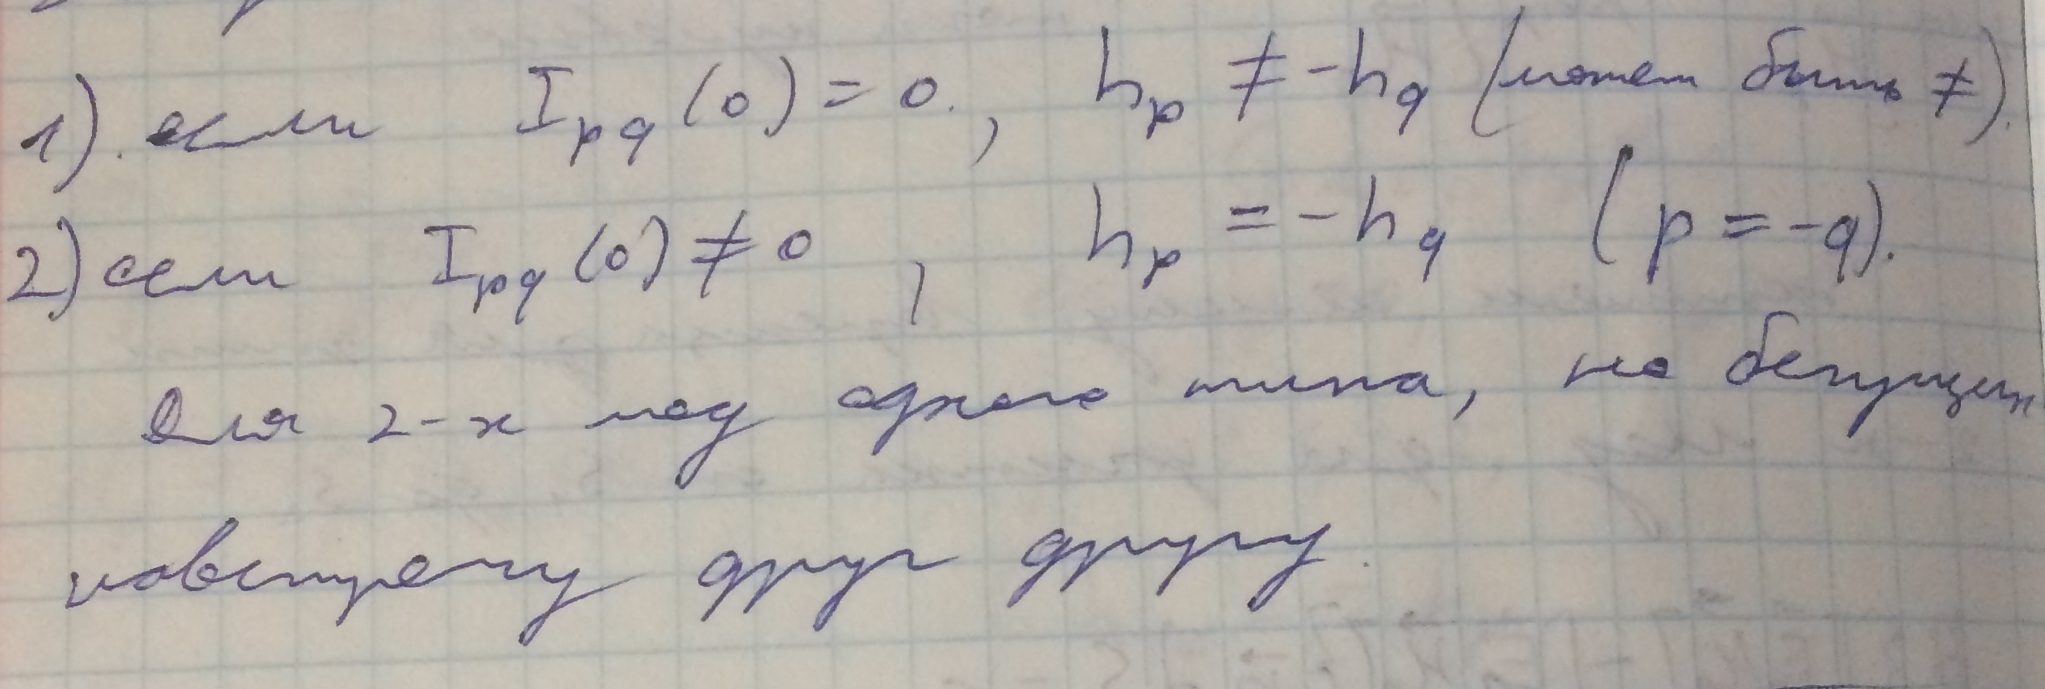 1). если I_pq (0) = 0. , h_p ≠ -h_q (может быть ≠).
2) если I_pq (0) ≠ 0 , h_p = -h_q (p = -q).
для 2-х мод одного типа, но бегущих
навстречу друг другу.